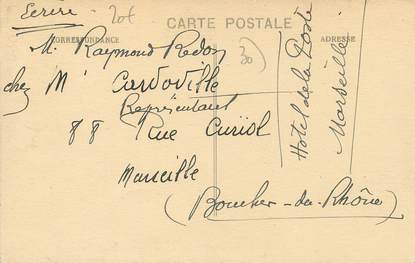 Ecrire - 20f
CARTE POSTALE
CORRESPONDANCE
ADRESSE
M. Raymond Redon
chez Mr Cardoville
Représentant
88 Rue Curiol
Marseille
(Bouches-du-Rhône)
30
Hotel de la Poste
Marseille